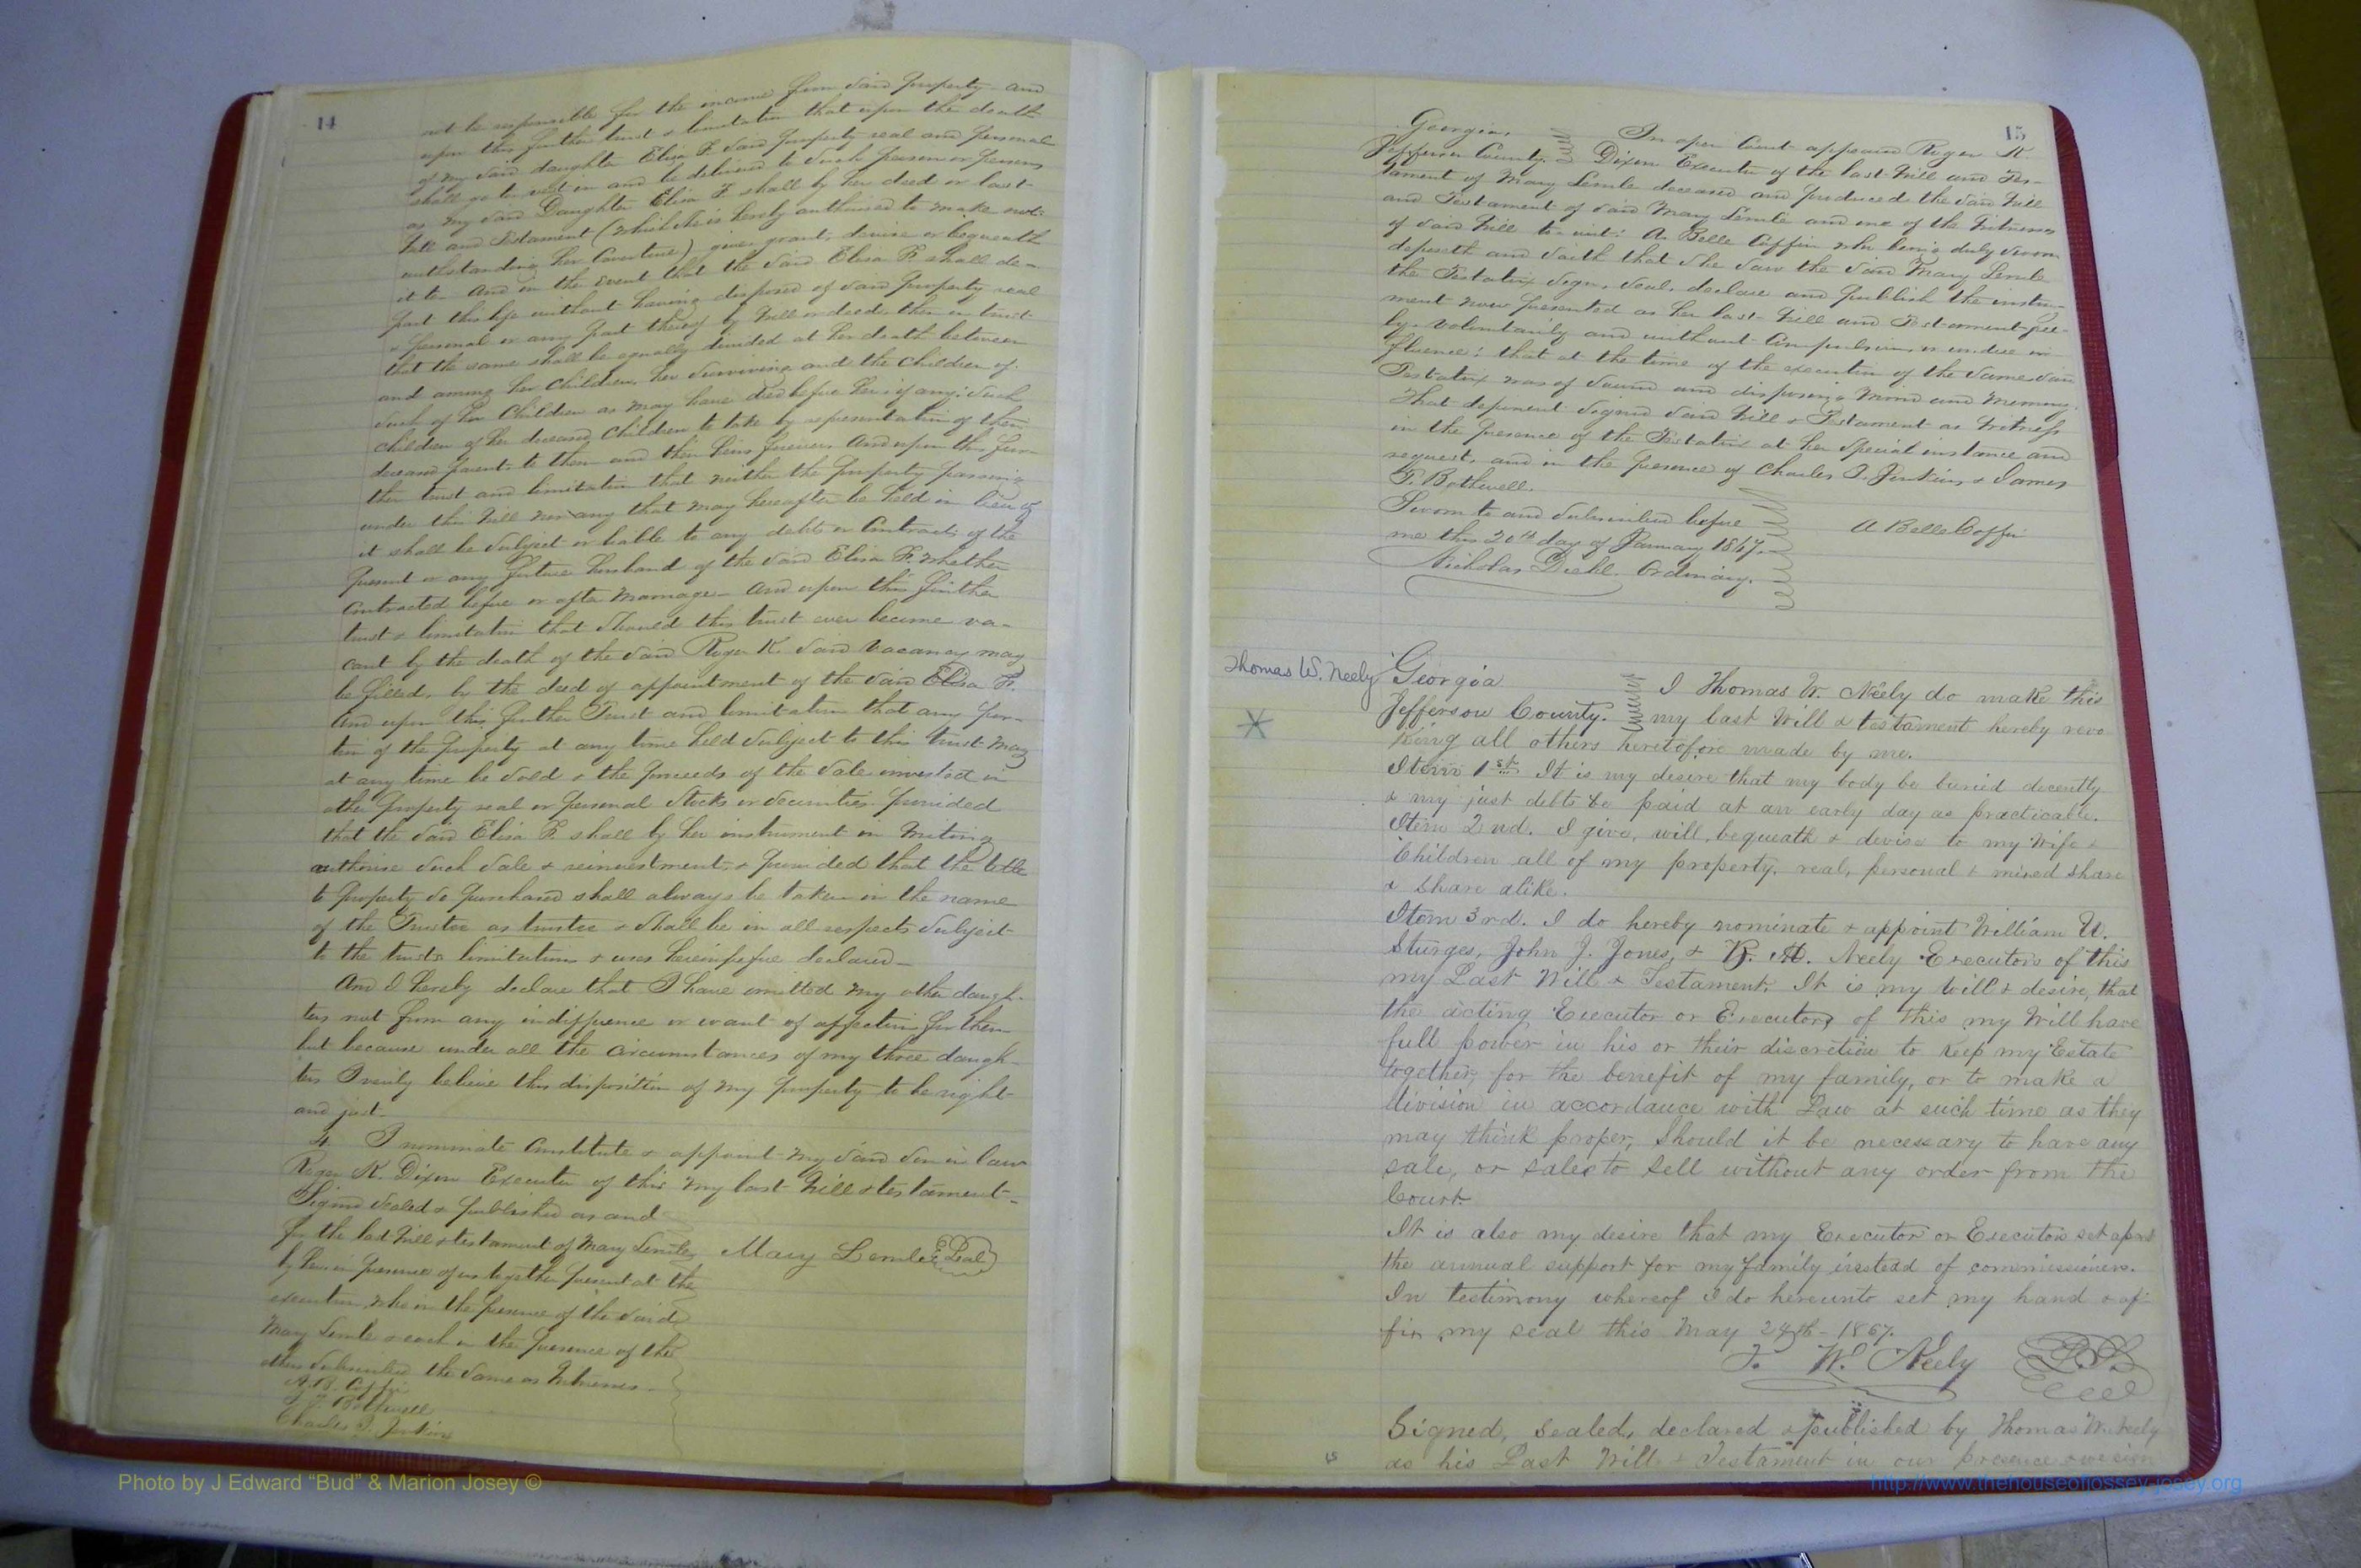 14
not be responsible for the income from said property - and
upon this further trust & limitation that upon the death
of my said daughter Eliza F. said property real and personal
shall go to vest in and be delivered to such person or persons
as my said Daughter Eliza F. shall by her deed or last
Will and Testament (which she is hereby authorised to make not-
withstanding her Coverture) give, grant, devise or bequeath
it to - And in the event that the said Eliza F. shall de-
part this life without having disposed of said property real
& personal or any part thereof by Will or deed, then in trust
that the same shall be equally divided at her death between
and among her children, her surviving and the children of
such of her Children as may have died before her if any: such
children of her deceased Children to take by representation of their
deceased parent, to them and their heirs forever. And upon this fur-
ther trust and limitation that neither the property passing
under this Will nor any that may hereafter be held in lieu of
it shall be subject or liable to any debts or Contracts of the
present or any future husband of the said Eliza F. whether
Contracted before or after marriage - And upon this further
trust & limitation that should this trust ever become va-
cant by the death of the said Roger K. said vacancy may
be filled, by the deed of appointment of the said Eliza F.
And upon this further Trust and limitation that any por-
tion of the property at any time held subject to this trust may
at any time be sold & the proceeds of the sale invested in
other property real or personal stocks or securities provided
that the said Eliza F. shall by her instrument in Writing
authorise such sale & reinvestment, & provided that the title
to property so purchased shall always be taken in the name
of the Trustee as trustee & shall be in all respects subject
to the trusts limitations & uses hereinbefore declared -
And I hereby declare that I have omitted my other daugh-
ters not from any indifference or want of affection for them
but because under all the circumstances of my three daugh-
ters I verily believe this disposition of my property to be right
and just.
4 I nominate constitute & appoint my said son in law
Roger K. Dixon Executor of this my last Will & testament -
Signed sealed & published as and
for the last Will & testament of Mary Semple Mary Semple Seal
by her in presence of us together present at the
execution, who in the presence of the said
Mary Semple & each in the presence of the
other subscribed the same as Witnesses -
A. B. Coffin
J. F. Bothwell
Charles J. Jenkins
15
Georgia, In open Court appeared Roger K.
Jefferson County. Dixon Executor of the last Will and Tes-
tament of Mary Semple deceased and produced the said Will
and Testament of said Mary Semple and one of the Witnesses
of said Will to wit: A. Belle Coffin who being duly sworn
deposeth and saith that she saw the said Mary Semple
the Testatrix sign, seal, declare and publish the instru-
ment now presented as her last Will and Testament free-
ly, voluntarily and without Compulsion or undue in-
fluence; that at the time of the execution of the same said
Testatrix was of sound and disposing Mind and Memory.
That deponent signed said Will & Testament as Witness
in the presence of the Testatrix at her special instance and
request, and in the presence of Charles J. Jenkins & James
F. Bothwell.
Sworn to and subscribed before A Belle Coffin
me this 20th day of January 1867.
Nicholas Diehl. Ordinary.
Thomas W. Neely
Georgia I Thomas W. Neely do make this
Jefferson County. my last Will & testament hereby revo
king all others heretofore made by me.
Item 1st It is my desire that my body be buried decently
& my just debts be paid at an early day as practicable.
Item 2nd. I give, will, bequeath & devise to my Wife &
Children all of my property, real, personal & mixed share
& share alike.
Item 3rd. I do hereby nominate & appoint William U.
Sturges, John J. Jones, & R. A. Neely Executors of this
my Last Will & Testament. It is my will & desire, that
the acting Executor or Executors of this my Will have
full power in his or their discretion to keep my Estate
together, for the benefit of my family, or to make a
division in accordance with Law at such time as they
may think proper, should it be necessary to have any
sale, or sales to sell without any order from the
Court.
It is also my desire that my Executor or Executors set apart
the annual support for my family instead of commissioners.
In testimony whereof I do hereunto set my hand & af-
fix my seal this May 24th - 1867.
T. W. Neely L.S.
Signed, sealed, declared & published by Thomas W. Neely
as his Last Will & Testament in our presence & we sign
15
Photo by J Edward “Bud” & Marion Josey ©
http://www.thehouseofjossey-josey.org